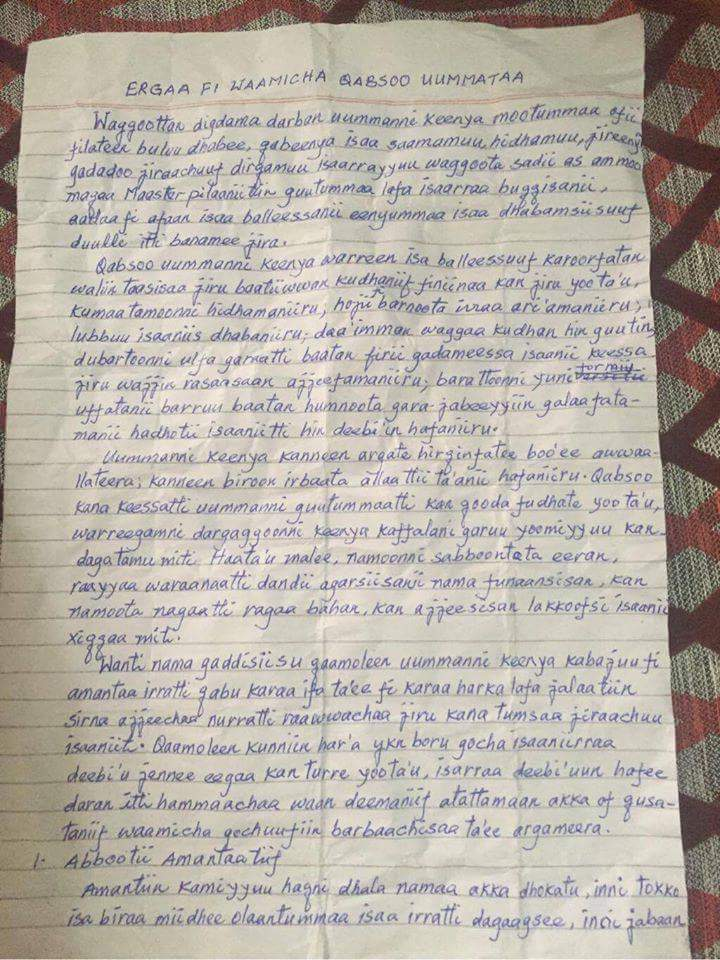 ERGAA FI WAAMICHA QABSOO UUMMATAA
Waggoottan digdama darban uummanni keenya mootummaa ofii
filateen bulu dhabee, qabeenya isaa saamamuu, hidhamuu, jireenya
gadadoo jiraachuuf dirqamuu isaarrayyuu waggoota sadii as ammoo
maqaa Maaster pilaaniitiin guutummaa lafa isaarraa buqqisanii,
aadaa fi afaan isaa balleessanii eenyummaa isaa dhabamsiisuuf
duulli itti banamee jira.
Qabsoo uummanni keenya warreen isa balleessuuf karoorfatan
waliin taasisaa jiru baatiiwwan kudhaniif finiinaa kan jiru yoo ta'u,
kumaatamoonni hidhamaniiru; hojii fi barnoota irraa ari'amaniiru;
lubbuu isaaniis dhabaniiru; daa'imman waggaa kudhan hin guutin,
dubartoonni ulfa garaatti baatan firii gadameessa isaanii keessa
jiru wajjin rasaasaan ajjeefamaniiru; barattoonni yuniformii
uffatanii barruu baatan humnoota gara-jabeeyyiin galaafata-
manii hadhotii isaaniitti hin deebi'in hafaniiru.
Uummanni keenya kanneen argate hirqinfatee boo'ee awwaa-
llateera; kanneen biroon irbaata allaattii ta'anii hafaniiru. Qabsoo
kana keessatti uummanni guutummaatti kan gooda fudhate yoo ta'u,
warreegamni dargaggoonni keenya kaffalani garuu yoomiyyuu kan
dagatamu miti. Haata'u malee, namoonni sabboontota eeran,
raayyaa waraanaatti dandii agarsiisanii nama funaansisan, kan
namoota nagaatti ragaa bahan, kan ajjeesisan lakkoofsi isaanii
xiqqaa miti.
Wanti nama gaddisiisu qaamoleen uummanni keenya kabajuu fi
amantaa irratti qabu karaa ifa ta'ee fi karaa harka lafa jalaatiin
sirna ajjeechaa nurratti raawwachaa jiru kana tumsaa jiraachuu
isaaniiti. Qaamoleen kunniin har'a ykn boru gocha isaaniirraa
deebi'u jennee eegaa kan turre yoo ta'u, isarraa deebi'uun hafee
daran itti hammaachaa waan deemaniif atattamaan akka of qusa-
taniif waamicha gochuufiin barbaachisaa ta'ee argameera.
1. Abbootii Amantaatiif
Amantiin kamiyyuu haqni dhala namaa akka dhokatu, inni tokko
isa biraa miidhee olaantummaa isaa irratti dagaagsee, inni jabaan